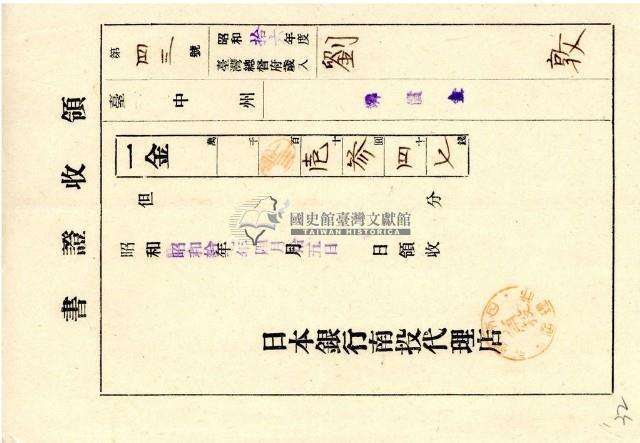 領收證書
第四三號
昭和拾六年度
臺灣總督府歲入
劉敦
臺中州
辨償金
一金
萬 千 百 十 圓 十 錢
壱 参 四 七
但 分
國史館臺灣文獻館
TAIWAN HISTORICA
昭和 年 月 日領收
日本銀行南投代理店
32